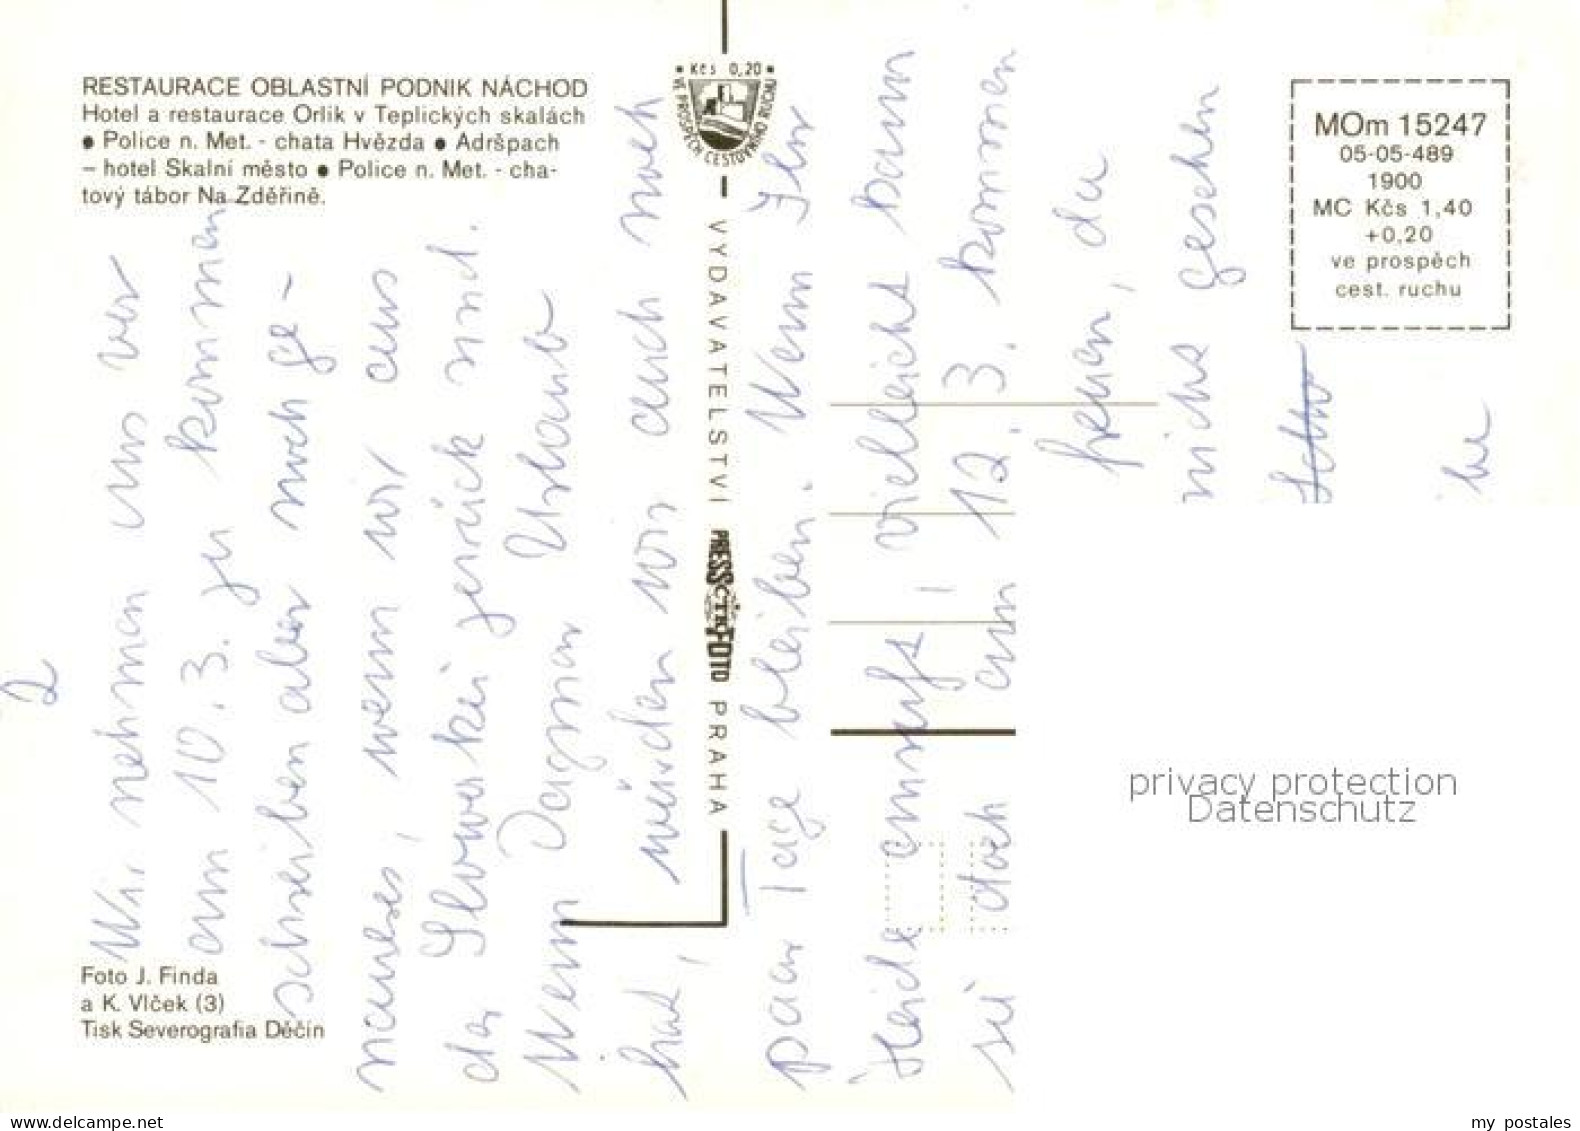 RESTAURACE OBLASTNÍ PODNIK NÁCHOD
Hotel a restaurace Orlík v Teplických skalách
● Police n. Met. - chata Hvězda ● Adršpach
– hotel Skalní město ● Police n. Met. - cha-
tový tábor Na Zděřině.
• Kčs 0,20 •
VE PROSPĚCH CESTOVNÍHO RUCHU
VYDAVATELSTVÍ PRESSFOTO PRAHA
MOm 15247
05-05-489
1900
MC Kčs 1,40
+0,20
ve prospěch
cest. ruchu
2
Wir nehmen uns vor
am 10.3. zu kommen
schreiben aber noch ge-
naueres, wenn wir aus
der Slowakei zurück sind.
Wenn Dagmar Urlaub
hat, würden wir auch noch
paar Tage bleiben. Wenn Ihr
Heide anruft, vielleicht kann
sie doch am 12.3. kommen
freuen, da
nicht gesehen
Foto J. Finda
a K. Vlček (3)
Tisk Severografia Děčín
privacy protection
Datenschutz
www.delcampe.net
my postales